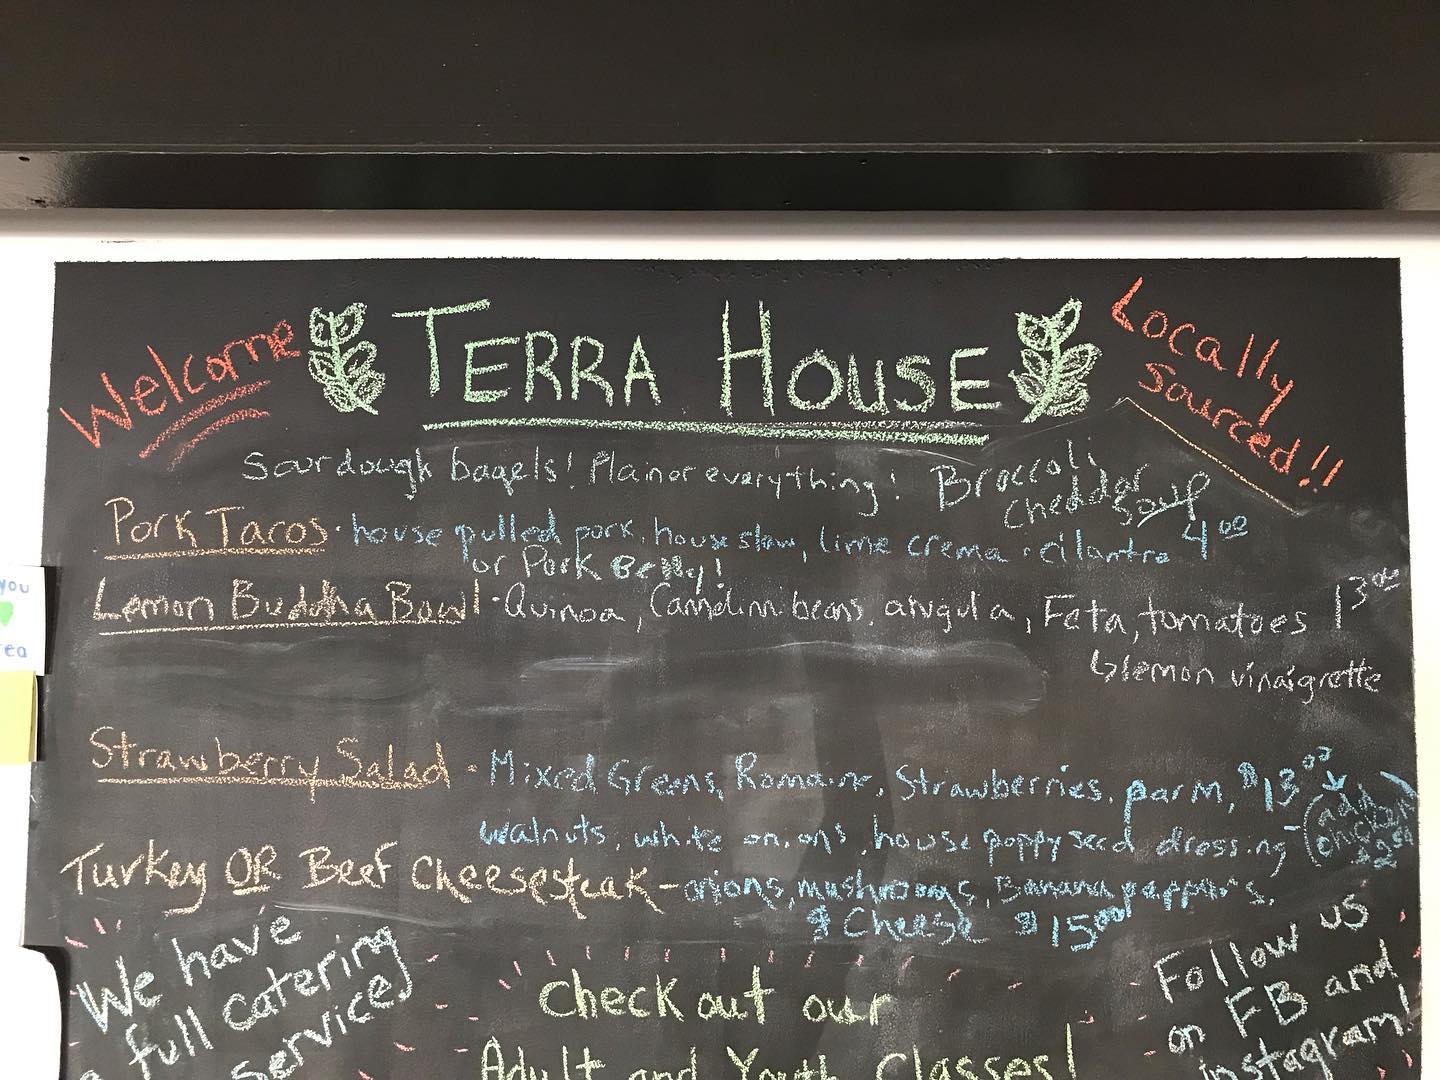 Welcome
TERRA HOUSE
Locally
Sourced!!
Sourdough bagels! Plain or everything!
Broccoli
Cheddar
Soup
Pork Tacos · house pulled pork, house slaw, lime crema · cilantro 4.00
or Pork Belly!
Lemon Buddha Bowl · Quinoa, Canellini beans, arugula, Feta, tomatoes 13.00
↳ lemon vinaigrette
Strawberry Salad · Mixed Greens, Romaine, Strawberries, parm, $13.00
walnuts, white onions, house poppyseed dressing
(add
chicken)
$2.50
Turkey OR Beef Cheesesteak – onions, mushrooms, Banana peppers,
$ Cheese $15.00
We have
a full catering
service!
Check out our
Adult and Youth Classes!
Follow us
on FB and
instagram!
you
rea